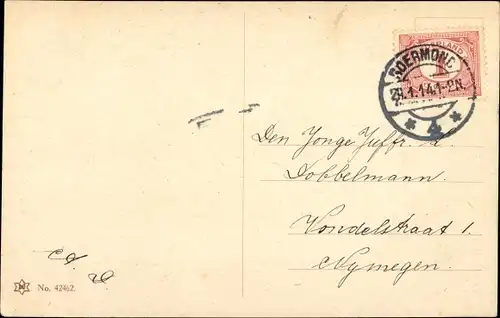 ROERMOND
29.1.14.1-2N.
4
1
Den Jonge Juffr. A.
Dobbelmann.
Vondelstraat 1.
Nymegen.
No. 42462.